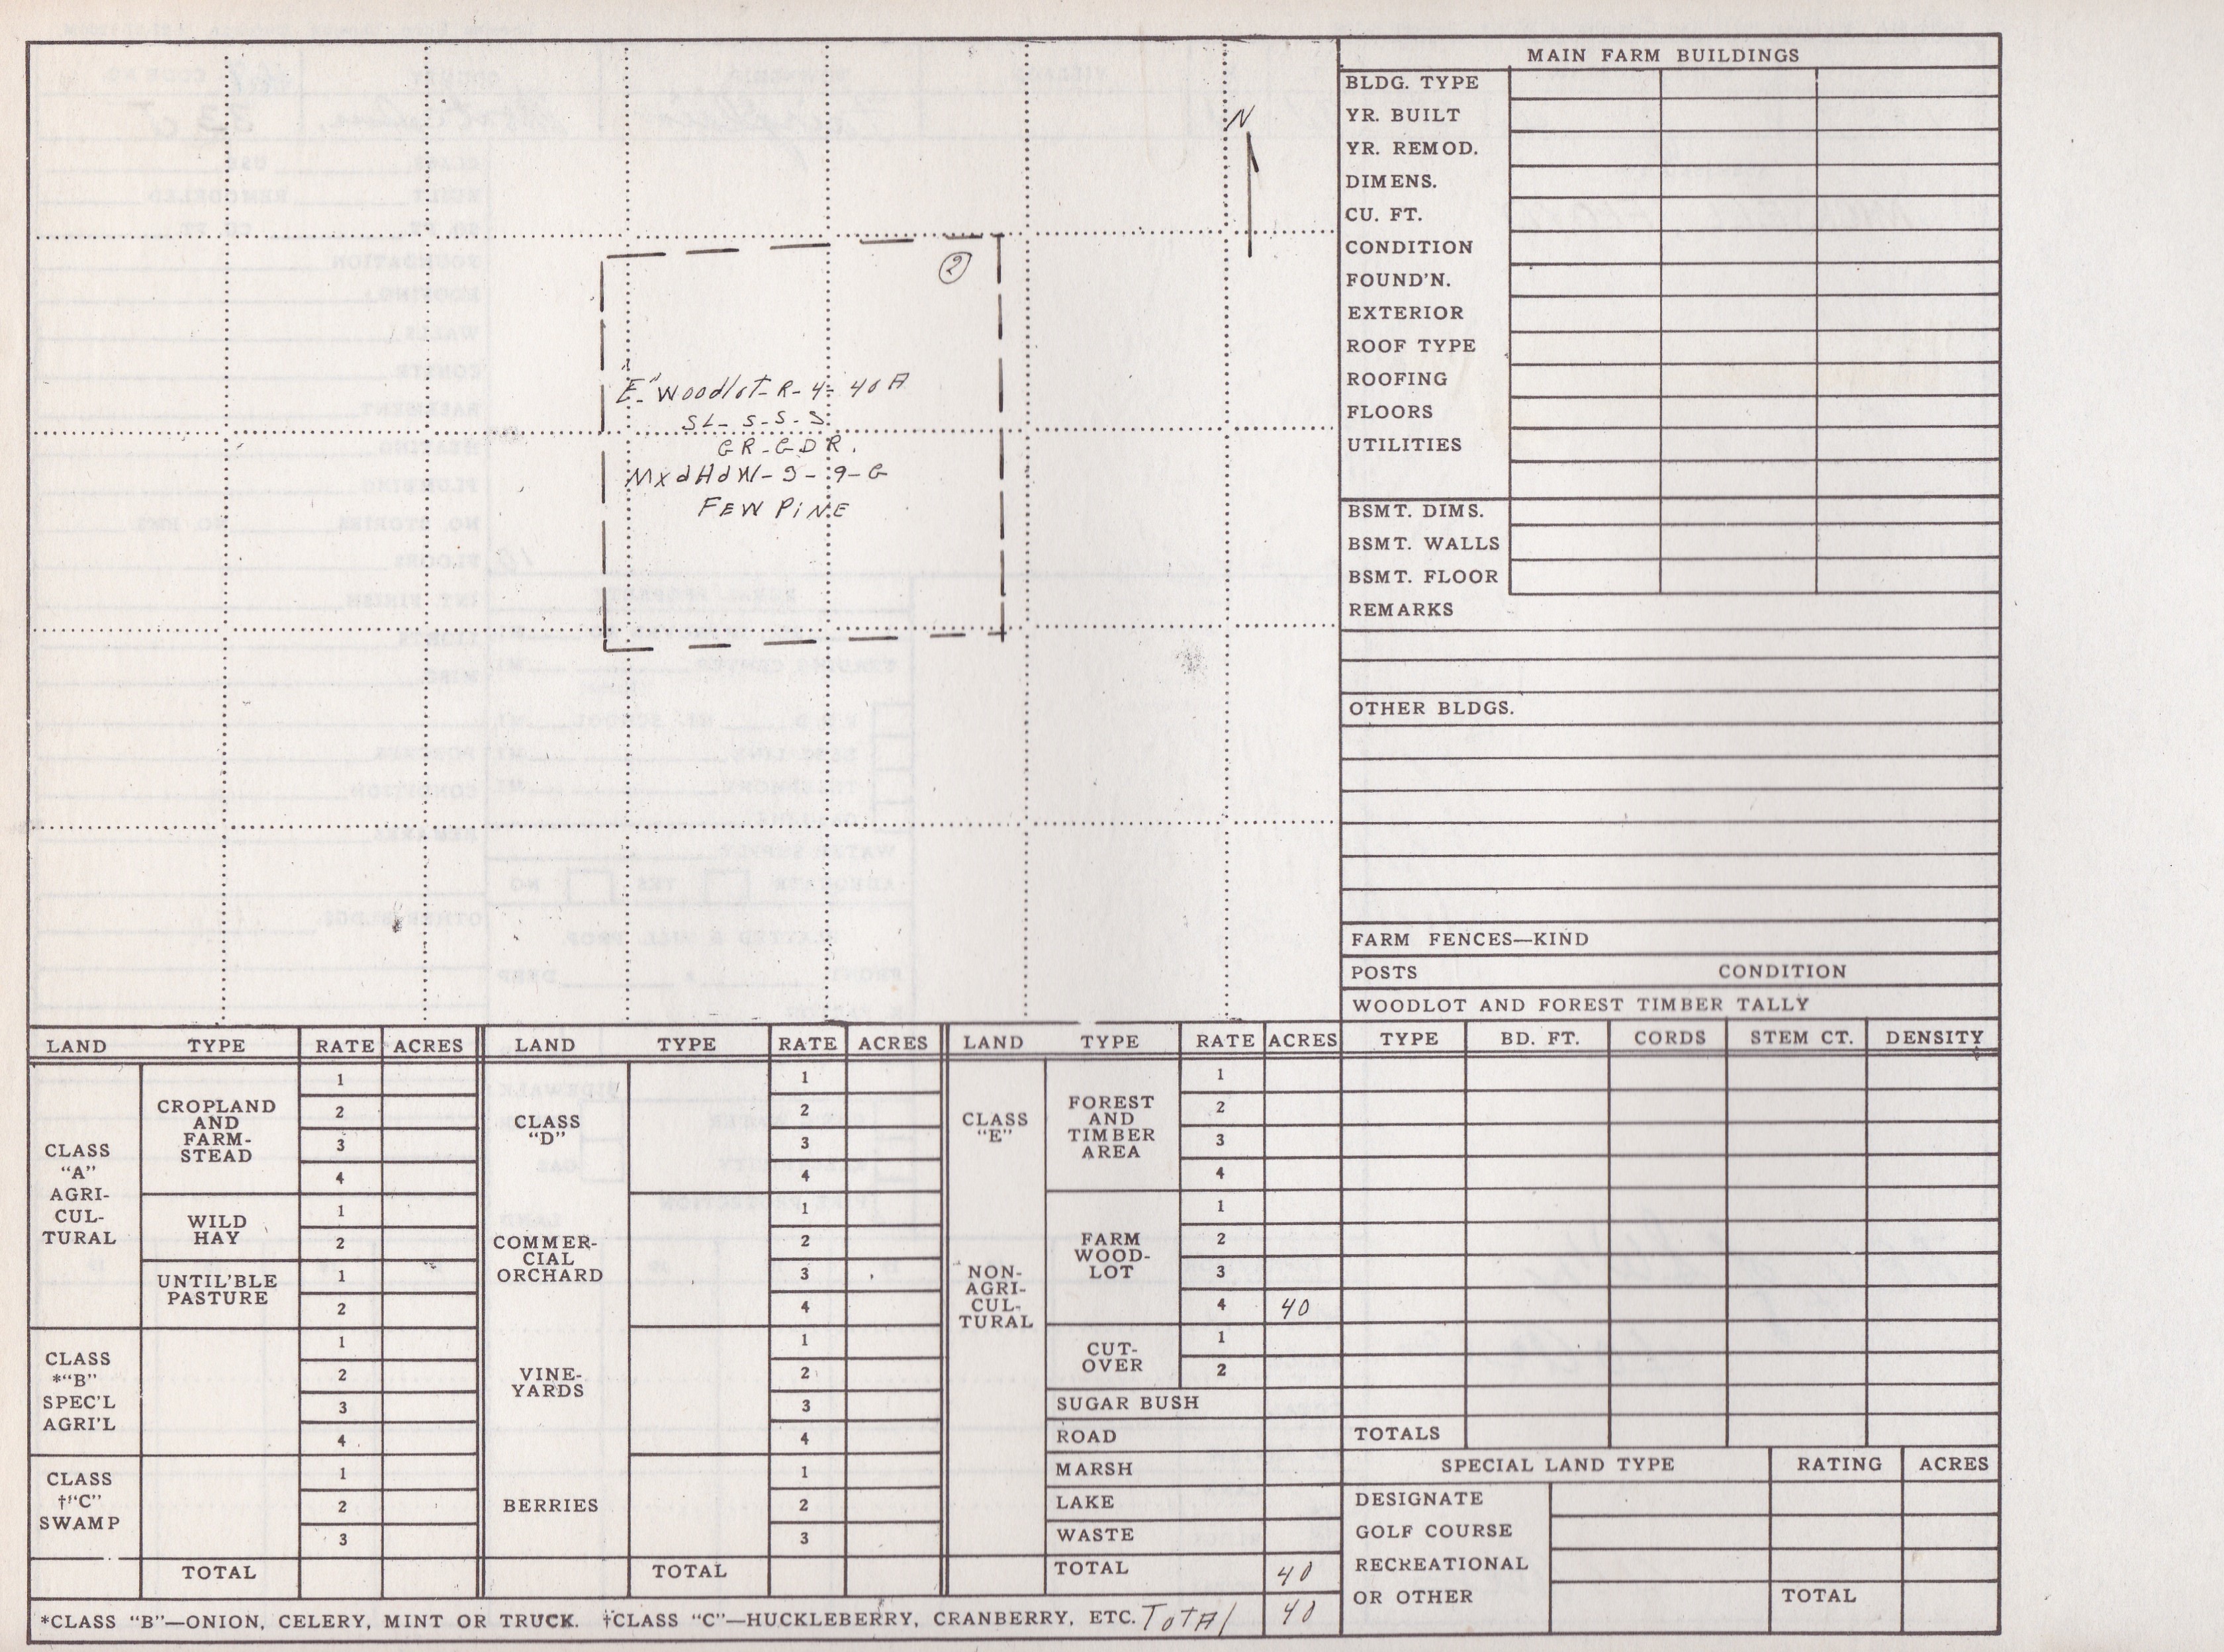 N
②
"E" Woodlot-R-4-40A
SL-S-S-S
GR-GDR.
MxdHdW-S-9-G
FEW PINE
MAIN FARM BUILDINGS
BLDG. TYPE
YR. BUILT
YR. REMOD.
DIMENS.
CU. FT.
CONDITION
FOUND'N.
EXTERIOR
ROOF TYPE
ROOFING
FLOORS
UTILITIES
BSMT. DIMS.
BSMT. WALLS
BSMT. FLOOR
REMARKS
OTHER BLDGS.
FARM FENCES—KIND
POSTS CONDITION
WOODLOT AND FOREST TIMBER TALLY
TYPE BD. FT. CORDS STEM CT. DENSITY
TOTALS
LAND TYPE RATE ACRES
CLASS
"A"
AGRI-
CUL-
TURAL
CROPLAND
AND
FARM-
STEAD
1
2
3
4
WILD
HAY
1
2
UNTIL'BLE
PASTURE
1
2
CLASS
*"B"
SPEC'L
AGRI'L
1
2
3
4
CLASS
†"C"
SWAMP
1
2
3
TOTAL
LAND TYPE RATE ACRES
CLASS
"D"
1
2
3
4
COMMER-
CIAL
ORCHARD
1
2
3
4
VINE-
YARDS
1
2
3
4
BERRIES
1
2
3
TOTAL
LAND TYPE RATE ACRES
CLASS
"E"
NON-
AGRI-
CUL-
TURAL
FOREST
AND
TIMBER
AREA
1
2
3
4
FARM
WOOD-
LOT
1
2
3
4 40
CUT-
OVER
1
2
SUGAR BUSH
ROAD
MARSH
LAKE
WASTE
TOTAL 40
SPECIAL LAND TYPE RATING ACRES
DESIGNATE
GOLF COURSE
RECREATIONAL
OR OTHER TOTAL
*CLASS "B"—ONION, CELERY, MINT OR TRUCK. †CLASS "C"—HUCKLEBERRY, CRANBERRY, ETC. TOTAL 40